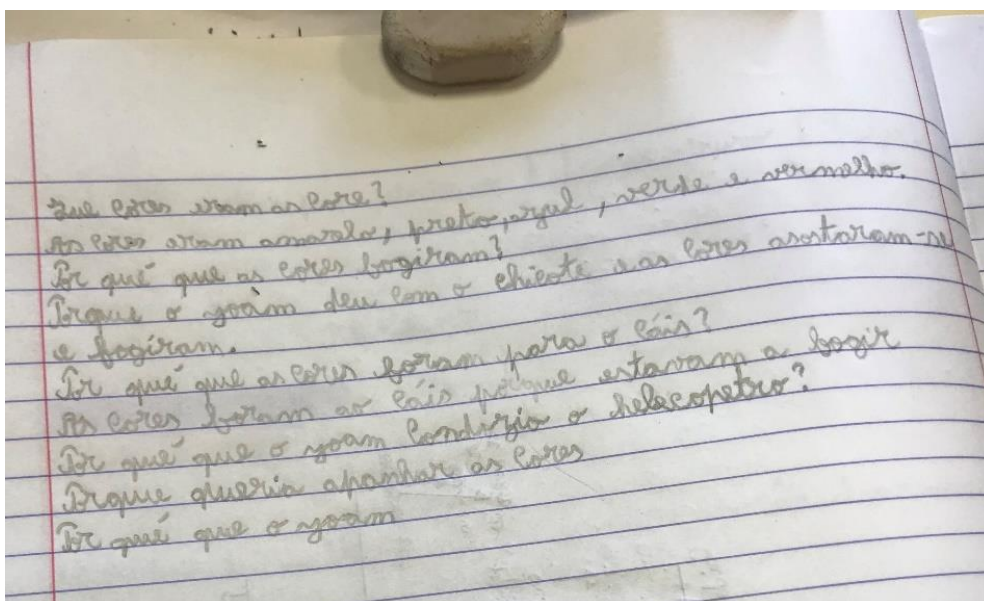 Que cores eram as core?
As cores aram amarelo, preto, azul, verde e vermelho.
Por quê que as cores fogiram?
Porque o yoam deu com o chicote e as cores asostaram-se
e fogíram.
Por quê que as cores foram para o cáis?
As cores foram ao cáis porque estavam a fogir
Por quê que o yoam condizio o helecopetro?
Porque queria apanhar as cores
Por quê que o yoam